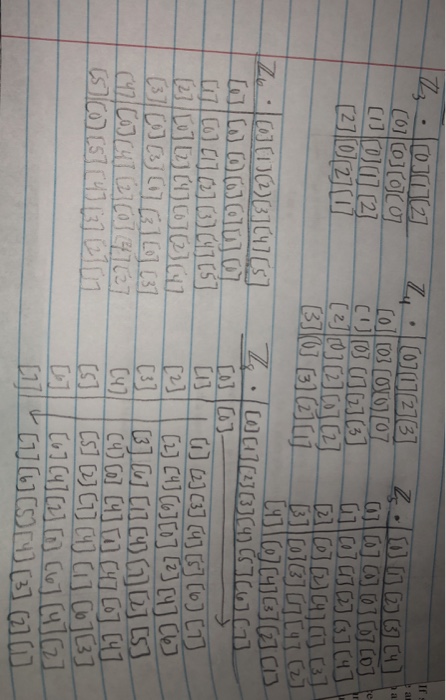 ℤ₃ · [0][1][2]
[0] [0][0][0]
[1] [0][1][2]
[2] [0][2][1]
ℤ₄ · [0][1][2][3]
[0] [0][0][0][0]
[1] [0][1][2][3]
[2] [0][2][0][2]
[3] [0][3][2][1]
ℤ₅ · [0][1][2][3][4]
[0] [0][0][0][0][0]
[1] [0][1][2][3][4]
[2] [0][2][4][1][3]
[3] [0][3][1][4][2]
[4] [0][4][3][2][1]
ℤ₆ · [0][1][2][3][4][5]
[0] [0][0][0][0][0][0]
[1] [0][1][2][3][4][5]
[2] [0][2][4][0][2][4]
[3] [0][3][0][3][0][3]
[4] [0][4][2][0][4][2]
[5] [0][5][4][3][2][1]
ℤ₈ · [0][1][2][3][4][5][6][7]
[0] [0] →
[1] [1][2][3][4][5][6][7]
[2] [2][4][6][0][2][4][6]
[3] [3][6][1][4][7][2][5]
[4] [4][0][4][0][4][0][4]
[5] [5][2][7][4][1][6][3]
[6] [6][4][2][0][6][4][2]
[7] ↓ [7][6][5][4][3][2][1]